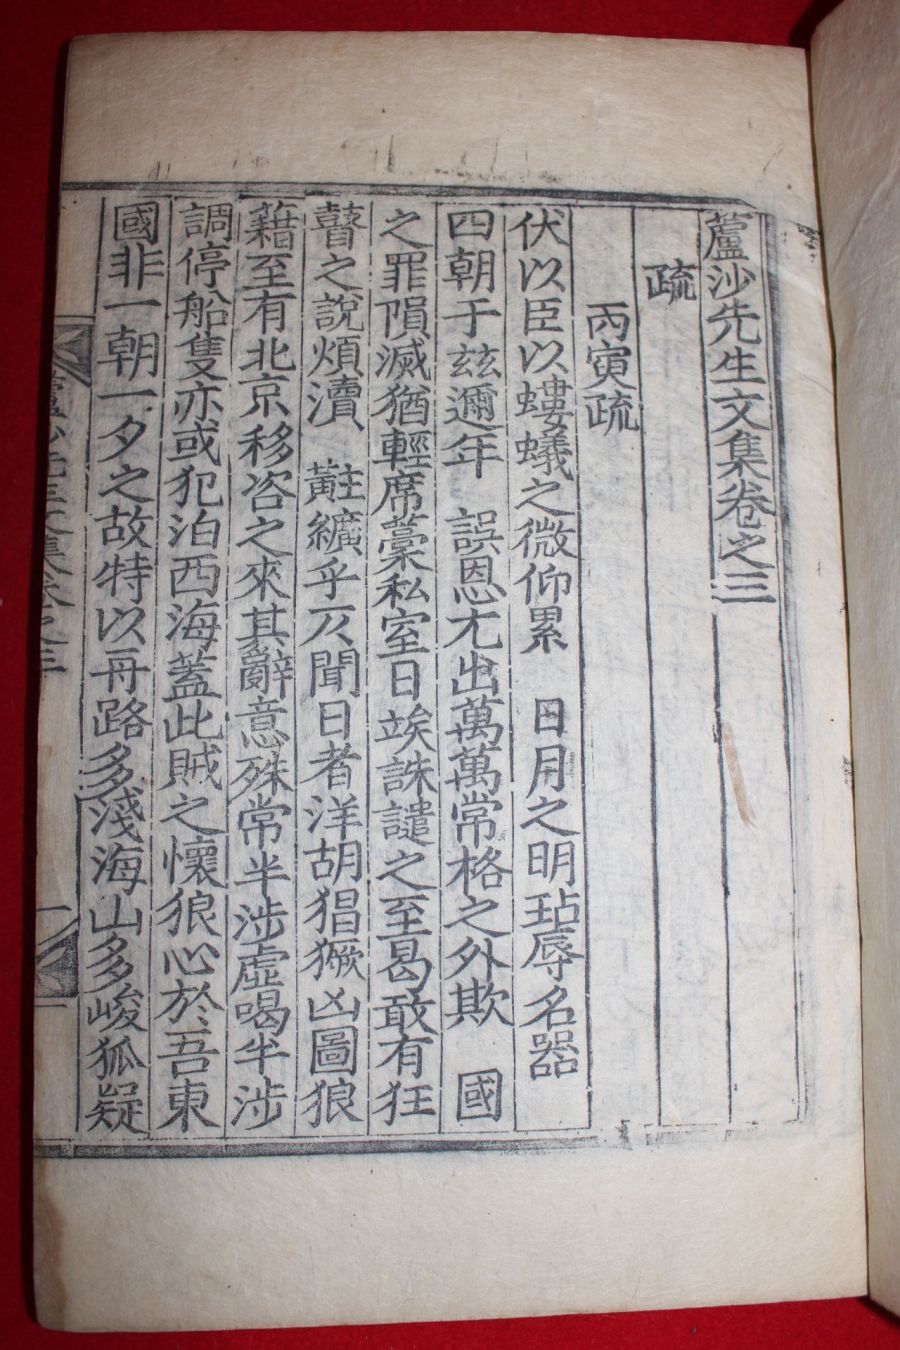 蘆沙先生文集卷之三
疏
丙寅疏
伏以臣以螻蟻之微仰累 日月之明玷辱名器
四朝于玆邇年 誤恩尤出萬萬常格之外欺 國
之罪隕滅猶輕席藁私室日竢誅譴之至曷敢有狂
瞽之說煩瀆 黈纊乎仄聞日者洋胡猖獗凶圖狼
藉至有北京移咨之來其辭意殊常半涉虛喝半涉
調停船隻亦或犯泊西海蓋此賊之懷狼心於吾東
國非一朝一夕之故特以再路多淺海山多峻狐疑
蘆沙先生文集卷之三
一